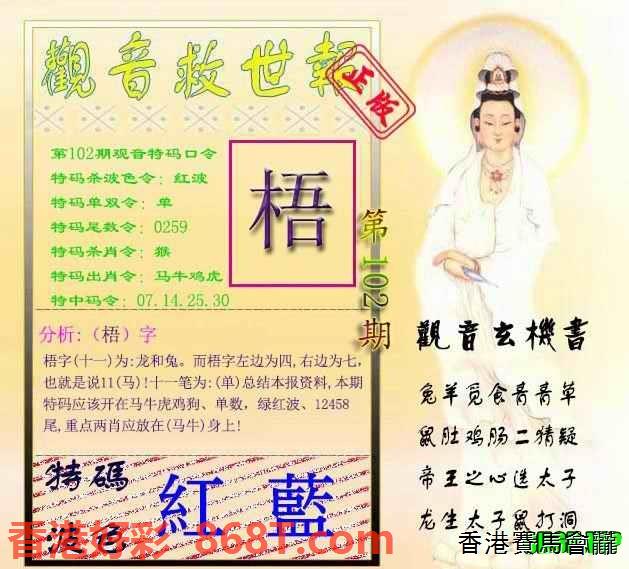 觀音救世報
正版
第102期观音特码口令
特码杀波色令：红波
特码单双令：单
特码尾数令：0259
特码杀肖令：猴
特码出肖令：马牛鸡虎
特中码令：07.14.25.30
梧
第102期
分析:（梧）字
梧字(十一)为:龙和兔。而梧字左边为四,右边为七,
也就是说11(马)!十一笔为:(单)总结本报资料,本期
特码应该开在马牛虎鸡狗、单数，绿红波、12458
尾,重点两肖应放在(马牛)身上!
特碼
波色
紅 藍
觀音玄機書
兔羊觅食青青草
鼠肚鸡肠二猜疑
帝王之心迭太子
龙生太子鼠打洞
香港好彩 868T.com
香港賽馬會